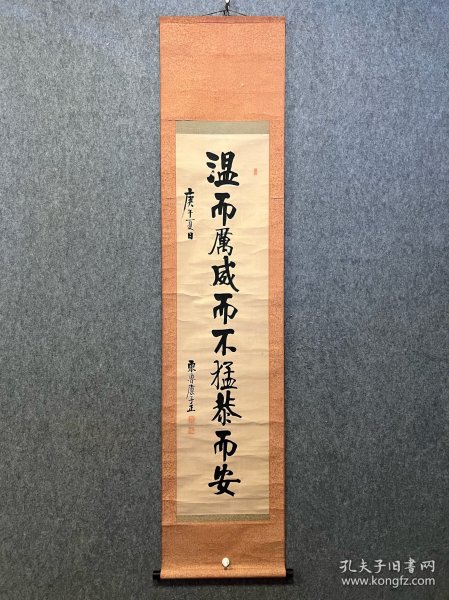 温而厲威而不猛恭而安
庚午夏日
孔夫子旧书网
www.kongfz.com